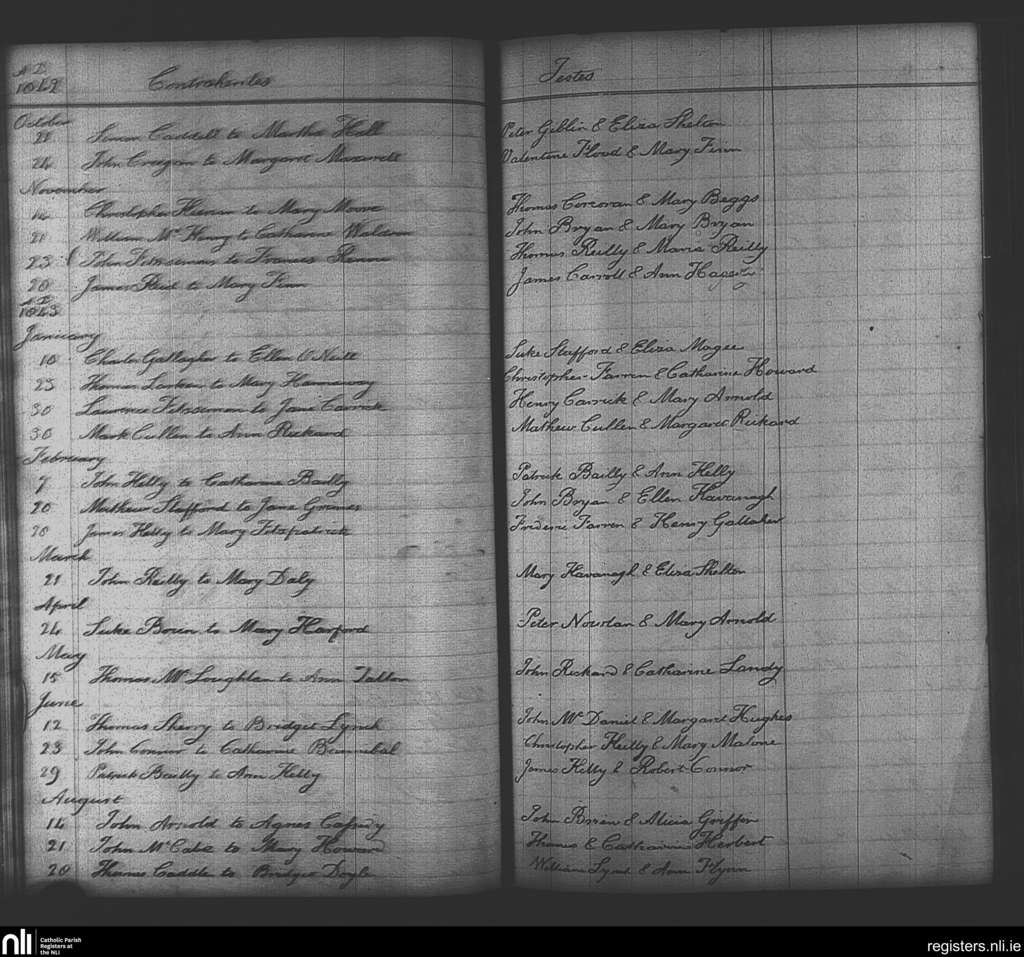 A D
Contrahentes
Testes
October
21 Simon Caddell to Martha Hall Peter Giblin & Eliza Shelton
24 John Creegan to Margaret Valentine Flood & Mary Finn
November
14 Christopher to Mary Moore Thomas Corcoran & Mary Beggs
21 William McHenry to Catharine Waldron John Bryan & Mary Bryan
23 John Fitzsimons to Frances Thomas Reilly & Maria Reilly
20 James Reid to Mary Finn James Carroll & Ann Hagerty
A D
Januuary
10 Charles Gallagher to Ellen O Neill Luke Stafford & Eliza Magee
23 Thomas to Mary Hanaway Christopher Farren & Catharine Howard
30 Laurence Fitzsimon to Jane Carrick Henry Carrick & Mary Arnold
30 Mark Cullen to Ann Rickard Mathew Cullen & Margaret Rickard
February
7 John Kelly to Catharine Bailly Patrick Bailly & Ann Kelly
20 Mathew Stafford to Jane Grimes John Bryan & Ellen Kavanagh
20 James Kelly to Mary Fitzpatrick Frederic Farren & Henry Gallaher
March
21 John Reilly to Mary Daly Mary Kavanagh & Eliza Shelton
April
24 Luke to Mary Harford Peter Nowlan & Mary Arnold
May
15 Thomas Mc Loughlan to Ann Tallon John Rickard & Catharine Landy
June
12 Thomas Sherry to Bridget Lynch John Mc Daniel & Margaret Hughes
23 John Connor to Catharine Christopher Reilly & Mary Malone
29 Patrick Bailly to Ann Kelly James Kelly & Robert Connor
August
14 John Arnold to Agnes Cafrey John & Alicia Griffin
21 John McCabe to Mary Howard Thomas & Catharine Herbert
20 Thomas Caddle to Bridget Doyle William Lynch & Ann Flynn
nli
Catholic Parish
Registers at
the NLI
registers.nli.ie